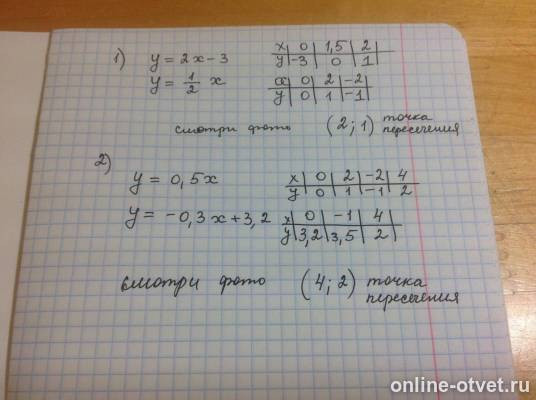 1) y = 2x - 3
x | 0 | 1,5 | 2
y | -3 | 0 | 1
y = 1/2 x
x | 0 | 2 | -2
y | 0 | 1 | -1
смотри фото (2; 1) точка пересечения
2)
y = 0,5x
x | 0 | 2 | -2 | 4
y | 0 | 1 | -1 | 2
y = -0,3x + 3,2
x | 0 | -1 | 4
y | 3,2 | 3,5 | 2
смотри фото (4; 2) точка пересечения
online-otvet.ru